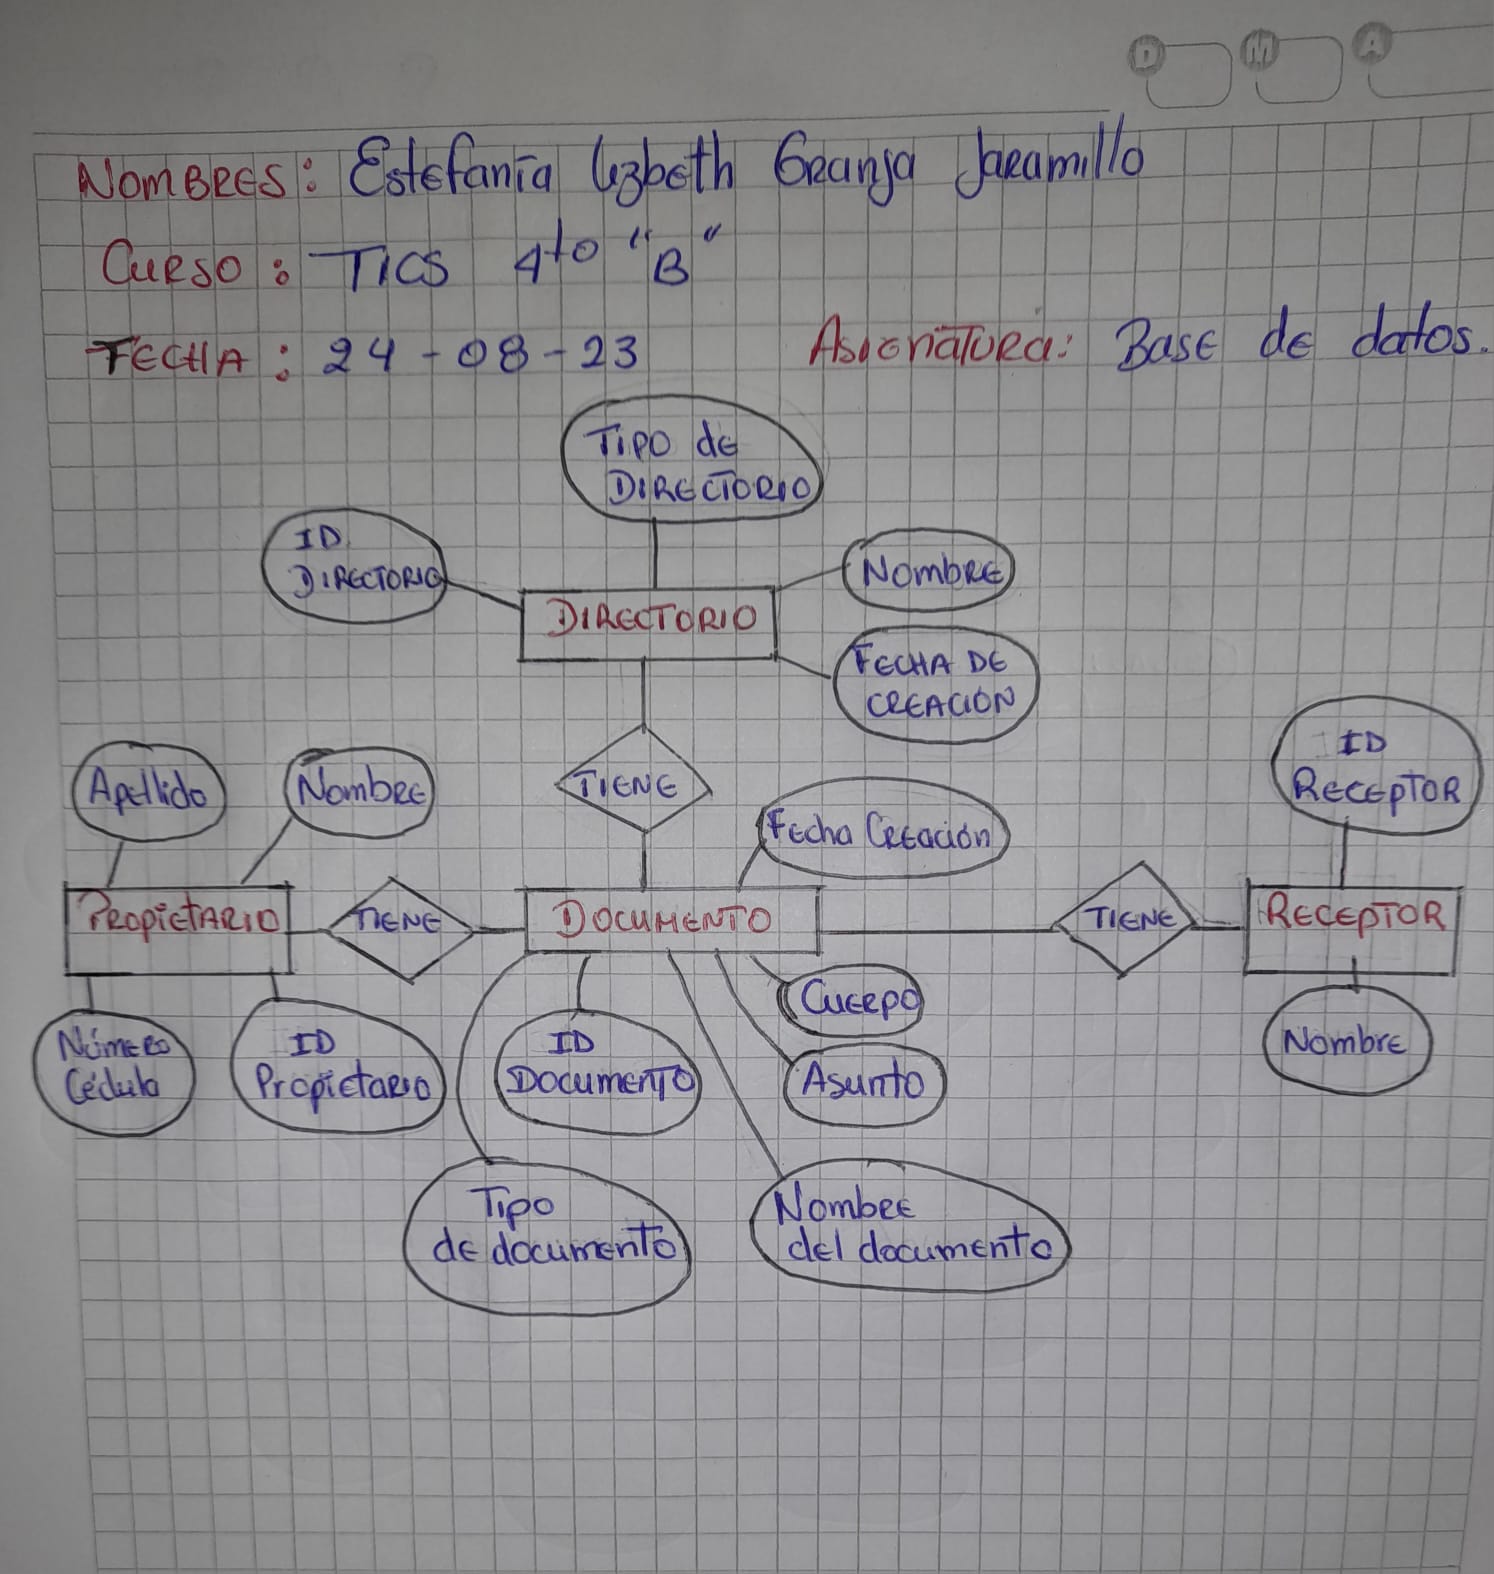 D M A
Nombres: Estefanía Lizbeth Granja Jaramillo
Curso: TICS 4to "B"
Fecha: 24-08-23 Asignatura: Base de datos.
Tipo de
Directorio
ID
Directorio
Nombre
Directorio
Fecha de
Creación
ID
Receptor
Apellido
Nombre
Tiene
Fecha Creación
Propietario
Tiene
Documento
Tiene
Receptor
Cuerpo
Número
Cédula
ID
Propietario
ID
Documento
Asunto
Nombre
Tipo
de documento
Nombre
del documento